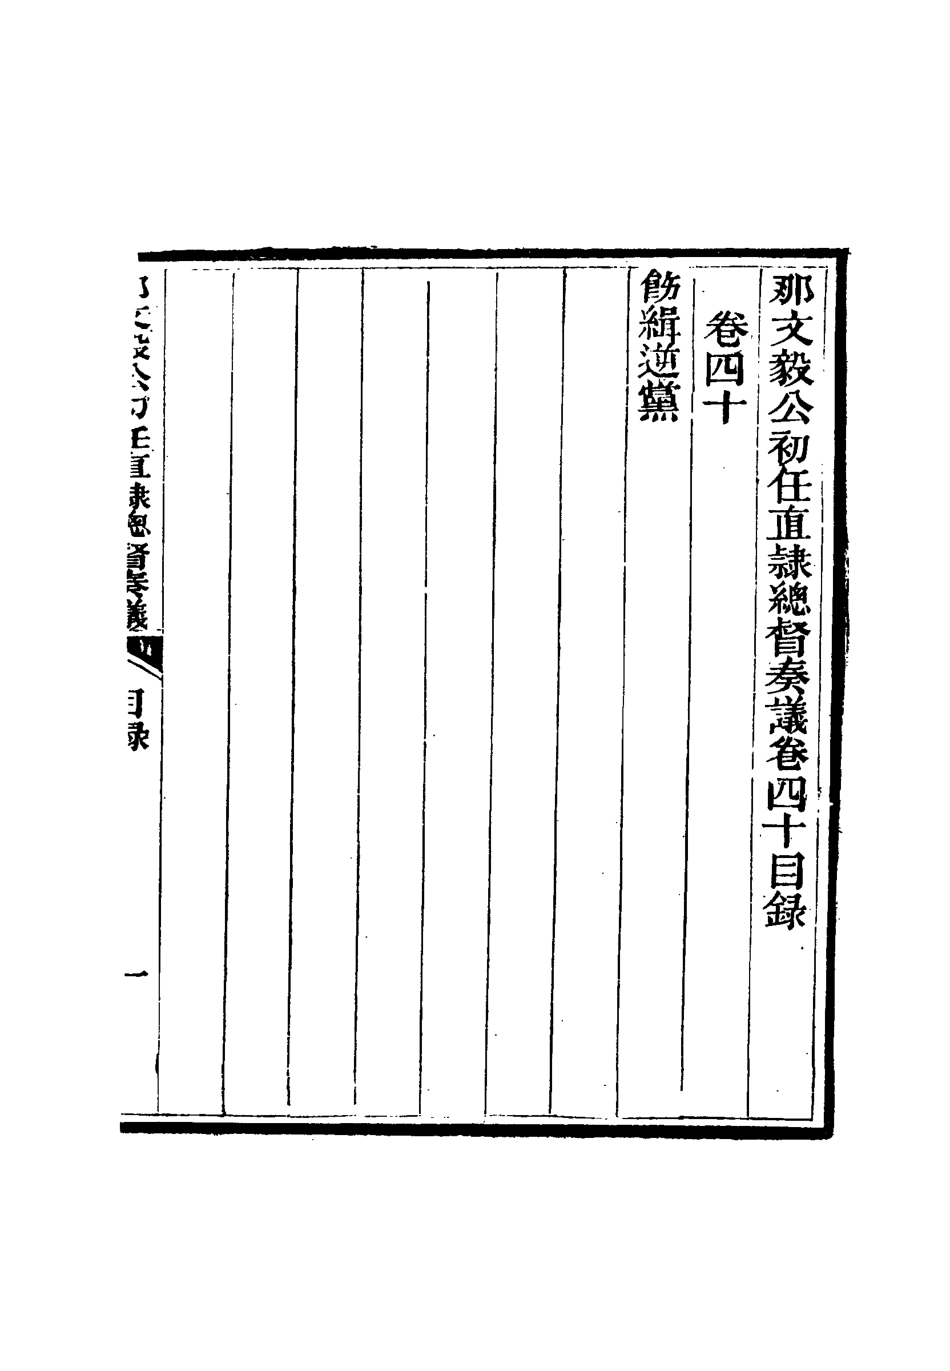 那文毅公初任直隷總督奏議卷四十目録
卷四十
飭緝逆黨
那文毅公初任直隷總督奏議
目録
一